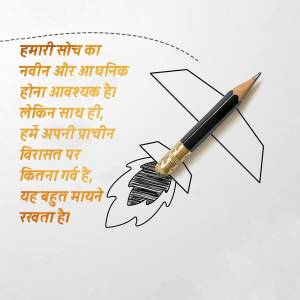 हमारी सोच का
नवीन और आधनिक
होना आवश्यक है।
लेकिन साथ ही,
हमें अपनी प्राचीन
विरासत पर
कितना गर्व है,
यह बहुत मायने
रखता है।